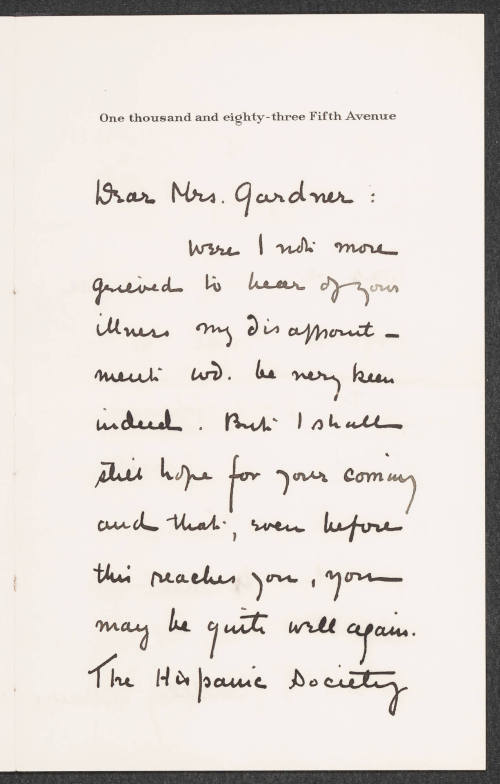 One thousand and eighty-three Fifth Avenue
Dear Mrs. Gardner :
Were I not more
grieved to hear of your
illness my disappoint-
ment wd. be very keen
indeed. But I shall
still hope for your coming
and that, even before
this reaches you, you
may be quite well again.
The Hispanic Society